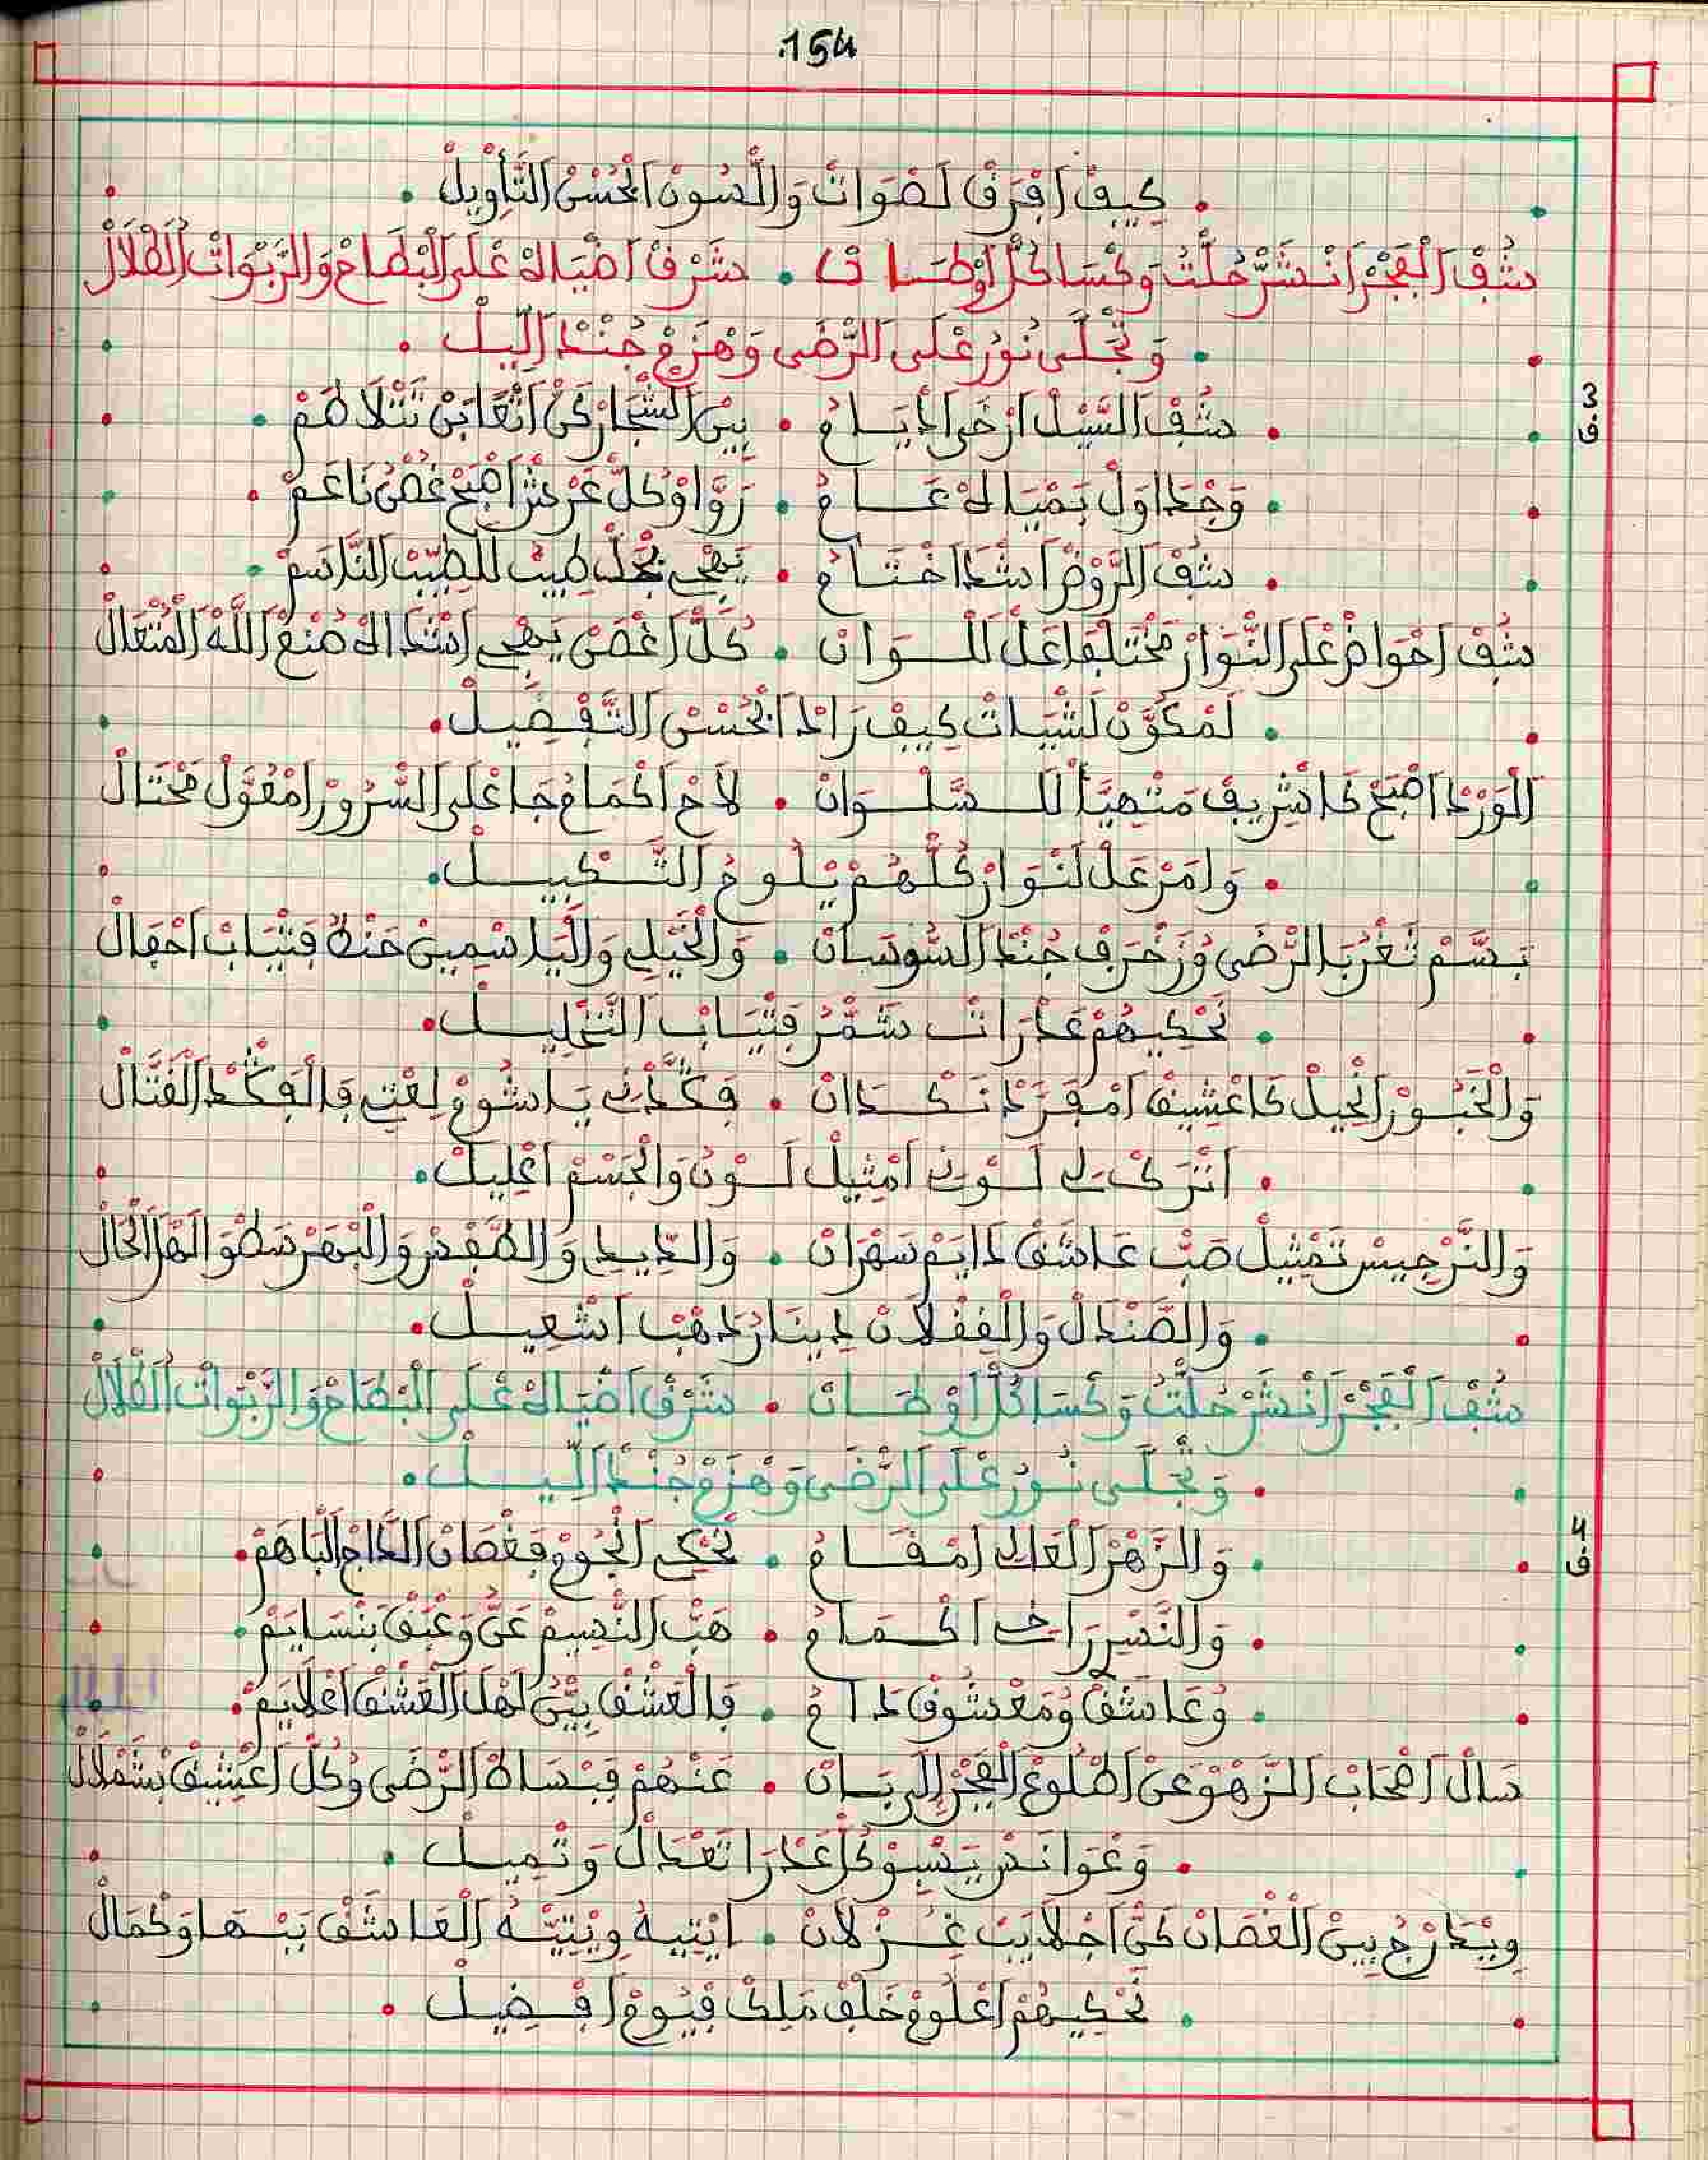 154
كيف افرق لصوات واللسون الحسن التأويل
شف الفجر انشر حلت وكسا كل اوطان • شرف اضياه على البطاح والربوات القلال
وتجلى نور على الرضى وهزم جند الليل
3
ف
شف السيل ارخى اديام • بين الشجار كن اتعابن تتلاطم
وجداول بمياه عام • رواو كل عرش اصبح غصن ناعم
شف الروض اشدا ختام • يهجي بجل طيب للطيب الناسم
شف احواض على النوار مختلفا عل للوان • كل اغصن يهجي اشدا اله صنع الله المتعال
لمكون لشيات كيف راد الحسن التفضيل
الورد اصبح كا شريف متهيأ للسلوان • لاح اكمام جا على السرور امعول محتال
وامر عل لنوار كلهم يلوح التكبيل
بسم ثغر بالرضى وزخرف جند السوسان • والخيلي والياسمين حنه فثياب احفال
تحكيهم عدرات شمر فثياب التنحليل
والخبور الحيل كا عشيق امفرد نكدان • فكدني يا شوم لعتي فالفكد الفتال
انترك لي لوني امثيل لون والجسم اعليل
والنرجيس تمثيل صب عاشق دايم سهران • والديدي والطفر والبهر سطوا لها الحال
والصندال والففلان دينار دهب اشعيل
شف الفجر انشر حلت وكسا كل اوطان • شرف اضياه على البطاح والربوات القلال
وتجلى نور على الرضى وهزم جند الليل
4
ف
والزهر العالي امقام • تحكي انجوم فغصان الداج الباهم
والنسر راخي اكمام • هب النسيم عن وعبق بنسايم
وعاشق ومعشوق دام • فالعشق بين لهل العشق اعلايم
سال اصحاب الزهو عن اطلوع الفجر الى بان • عنهم فبساط الرضى وكل اعشيق بشملال
وغوانس يسبو كل عدرا تعدال وتميل
ويدارج بين الغصان كن اجلايب غزلان • ايتيه ويتيه العاشق ببها وكمال
تحكيهم اعلوم خلف ملك فيوم افضيل